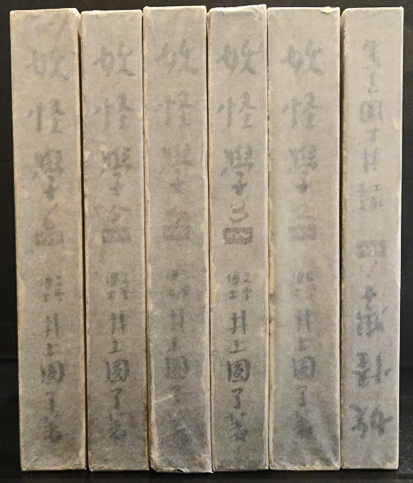 妖怪學
文學博士 井上圓了著
妖怪學
文學博士 井上圓了著
妖怪學
文學博士 井上圓了著
妖怪學 三
文學博士 井上圓了著
妖怪學
文學博士 井上圓了著
妖怪學
文學博士 井上圓了著